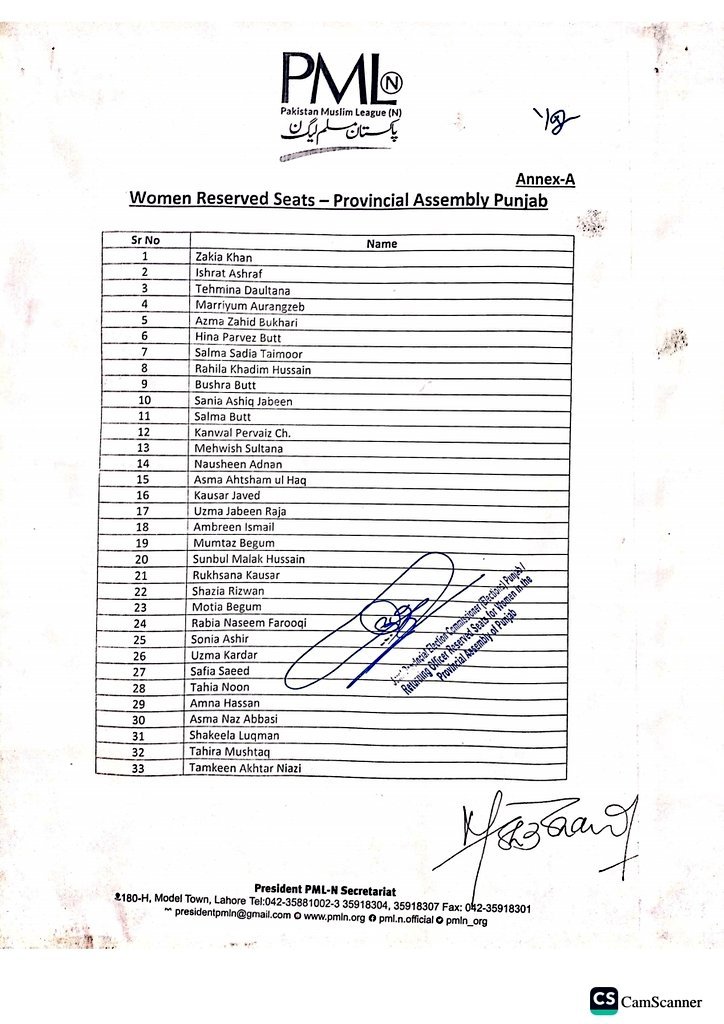 PML N
Pakistan Muslim League (N)
پاکستان مسلم لیگ ن
Annex-A
Women Reserved Seats – Provincial Assembly Punjab
Sr No Name
1 Zakia Khan
2 Ishrat Ashraf
3 Tehmina Daultana
4 Marriyum Aurangzeb
5 Azma Zahid Bukhari
6 Hina Parvez Butt
7 Salma Sadia Taimoor
8 Rahila Khadim Hussain
9 Bushra Butt
10 Sania Ashiq Jabeen
11 Salma Butt
12 Kanwal Pervaiz Ch.
13 Mehwish Sultana
14 Nausheen Adnan
15 Asma Ahtsham ul Haq
16 Kausar Javed
17 Uzma Jabeen Raja
18 Ambreen Ismail
19 Mumtaz Begum
20 Sunbul Malak Hussain
21 Rukhsana Kausar
22 Shazia Rizwan
23 Motia Begum
24 Rabia Naseem Farooqi
25 Sonia Ashir
26 Uzma Kardar
27 Safia Saeed
28 Tahia Noon
29 Amna Hassan
30 Asma Naz Abbasi
31 Shakeela Luqman
32 Tahira Mushtaq
33 Tamkeen Akhtar Niazi
Provincial Election Commissioner (Elections) Punjab/
Returning Officer Reserved Seats for Women in the
Provincial Assembly of Punjab
President PML-N Secretariat
180-H, Model Town, Lahore Tel:042-35881002-3 35918304, 35918307 Fax: 042-35918301
presidentpmln@gmail.com www.pmln.org pml.n.official pmln_org
CS CamScanner